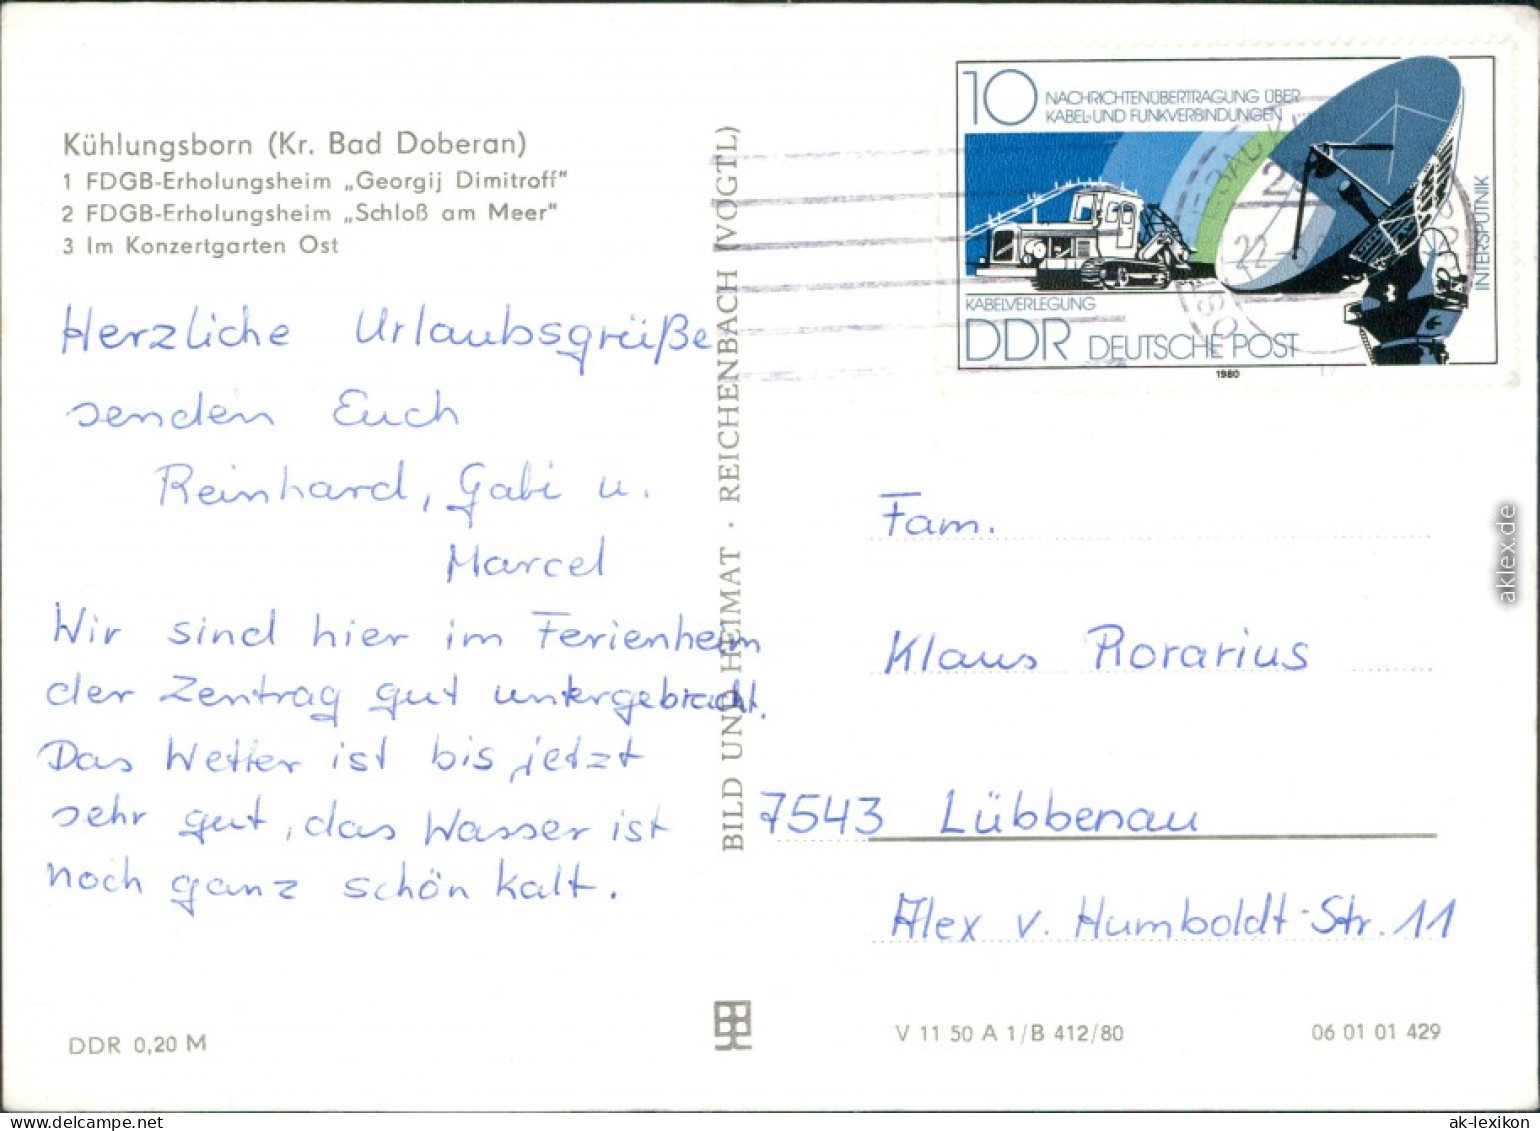 Kühlungsborn (Kr. Bad Doberan)
1 FDGB-Erholungsheim „Georgij Dimitroff"
2 FDGB-Erholungsheim „Schloß am Meer"
3 Im Konzertgarten Ost
Herzliche Urlaubsgrüße
senden Euch
Reinhard, Gabi u.
Marcel
Wir sind hier im Ferienheim
der Zentrag gut untergebracht.
Das Wetter ist bis jetzt
sehr gut, das Wasser ist
noch ganz schön kalt.
DDR 0,20 M
BILD UND HEIMAT · REICHENBACH (VOGTL)
10 NACHRICHTENÜBERTRAGUNG ÜBER
KABEL- UND FUNKVERBINDUNGEN
INTERSPUTNIK
KABELVERLEGUNG
DDR DEUTSCHE POST
1980
Fam.
Klaus Rorarius
7543 Lübbenau
Alex v. Humboldt-Str. 11
V 11 50 A 1/B 412/80
06 01 01 429
aklex.de
ak-lexikon